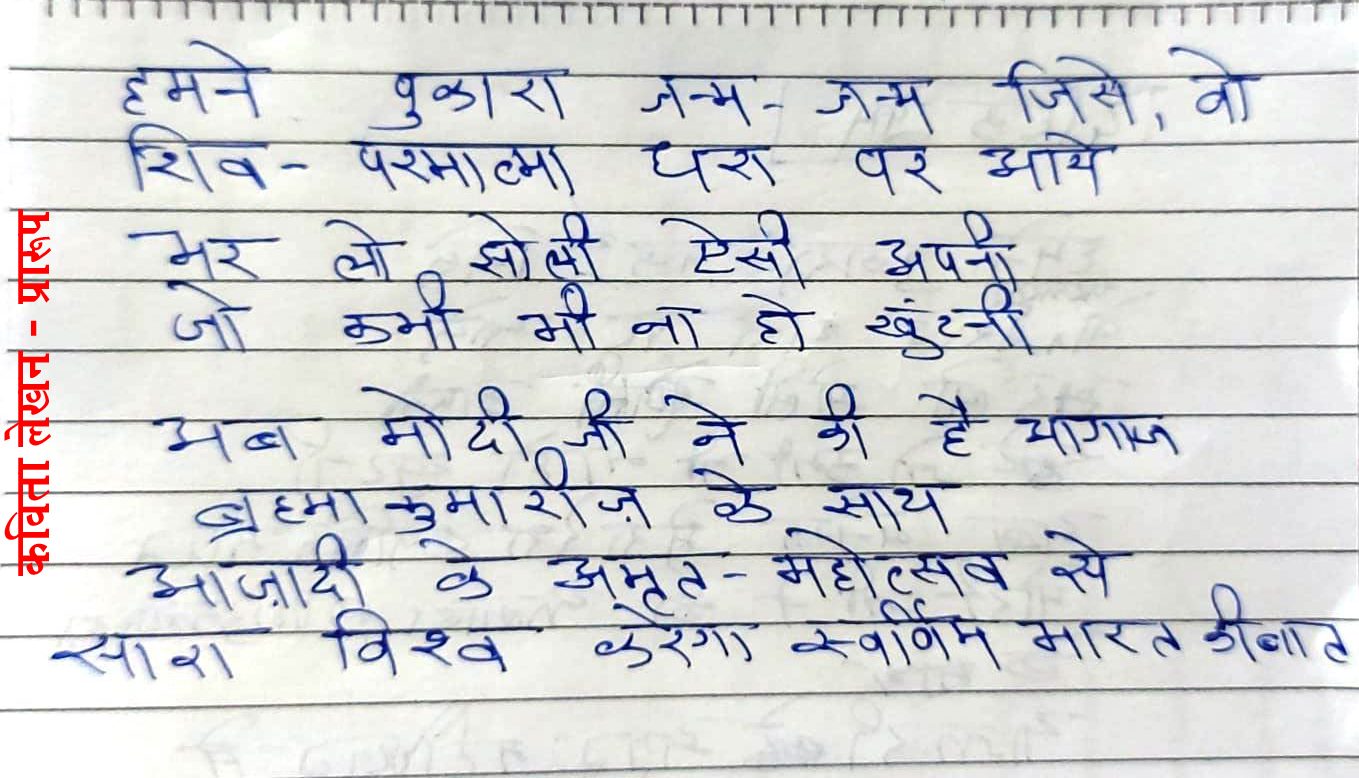 हमने पुकारा जन्म-जन्म जिसे, वो
शिव-परमात्मा धरा पर आये
भर लो झोली ऐसी अपनी
जो कभी भी ना हो खुंटनी
अब मोदी जी ने की है आगाज
ब्रह्माकुमारीज़ के साथ
आज़ादी के अमृत-महोत्सव से
सारा विश्व करेगा स्वर्णिम भारत की बात
कविता लेखन - प्रारूप